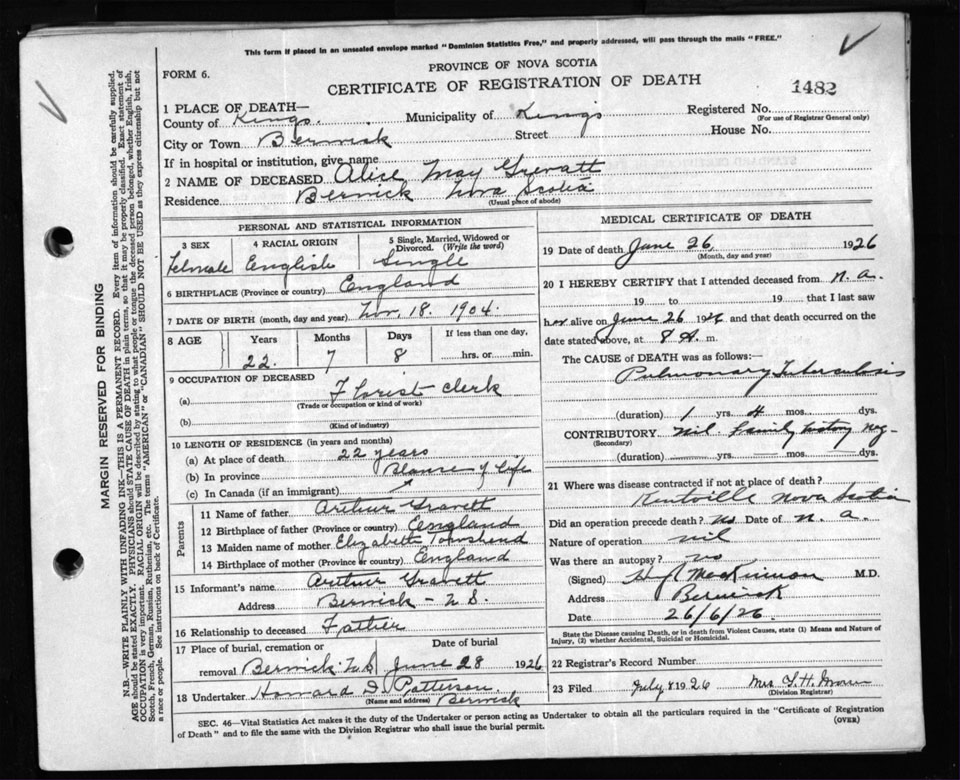 This form if placed in an unsealed envelope marked "Dominion Statistics Free," and properly addressed, will pass through the mails "FREE."
PROVINCE OF NOVA SCOTIA
FORM 6.
CERTIFICATE OF REGISTRATION OF DEATH
1482
1 PLACE OF DEATH—
County of Kings. Municipality of Kings Registered No.
(For use of Registrar General only)
City or Town Berwick Street House No.
If in hospital or institution, give name
2 NAME OF DECEASED Alice May Grevatt
Residence Berwick Nova Scotia
(Usual place of abode)
PERSONAL AND STATISTICAL INFORMATION
3 SEX 4 RACIAL ORIGIN 5 Single, Married, Widowed or Divorced. (Write the word)
Female English Single
6 BIRTHPLACE (Province or country) England
7 DATE OF BIRTH (month, day and year) Nov. 18. 1904.
8 AGE Years Months Days If less than one day,
22. 7 8 hrs. or min.
9 OCCUPATION OF DECEASED
(a) Florist clerk
(Trade or occupation or kind of work)
(b)
(Kind of industry)
10 LENGTH OF RESIDENCE (in years and months)
(a) At place of death 22 years
(b) In province of life
(c) In Canada (if an immigrant)
Parents
11 Name of father Arthur Gravett
12 Birthplace of father (Province or country) England
13 Maiden name of mother Elizabeth Townshend
14 Birthplace of mother (Province or country) England
15 Informant's name Arthur Gravett
Address Berwick - N.S.
16 Relationship to deceased Father
17 Place of burial, cremation or removal Date of burial
Berwick N.S June 28 1926
18 Undertaker Howard D. Patterson
(Name and address) Berwick
MEDICAL CERTIFICATE OF DEATH
19 Date of death June 26 1926
(Month, day and year)
20 I HEREBY CERTIFY that I attended deceased from n.a.
19 to 19 that I last saw
her alive on June 26 1926 and that death occurred on
date stated above, at 8 A. m.
The CAUSE of DEATH was as follows:—
Pulmonary Tuberculosis
(duration) 1 yrs. 4 mos. dys.
CONTRIBUTORY nil family history neg-
(Secondary)
(duration) yrs. mos. dys.
21 Where was disease contracted if not at place of death?
Kentville Nova Scotia
Did an operation precede death? No Date of n. a.
Nature of operation nil
Was there an autopsy? no
(Signed) MacKinnon M.D.
Address Berwick
Date 26/6/26
State the Disease causing Death, or in death from Violent Causes, state (1) Means and Nature of
Injury, (2) whether Accidental, Suicidal or Homicidal.
22 Registrar's Record Number
23 Filed July 8 1926 Mrs
(Division Registrar)
SEC. 46—Vital Statistics Act makes it the duty of the Undertaker or person acting as Undertaker to obtain all the particulars required in the "Certificate of Registration
of Death" and to file the same with the Division Registrar who shall issue the burial permit.
(OVER)
MARGIN RESERVED FOR BINDING
N.B.—WRITE PLAINLY WITH UNFADING INK—THIS IS A PERMANENT RECORD. Every item of information should be carefully supplied.
AGE should be stated EXACTLY. PHYSICIANS should STATE CAUSE OF DEATH in plain terms, so that it may be properly classified. Exact statement of
OCCUPATION is very important. RACIAL ORIGIN will be described by stating to what people or tongue the deceased person belonged, whether English, Irish,
Scotch, French, German, Russian, Ruthenian, etc. The terms "AMERICAN" or "CANADIAN" SHOULD NOT BE USED as they express citizenship but not
a race or people. See instructions on back of Certificate.